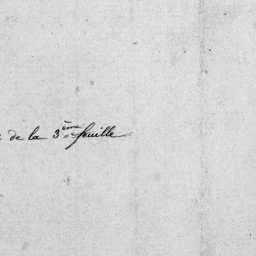 de la 3ème feuille